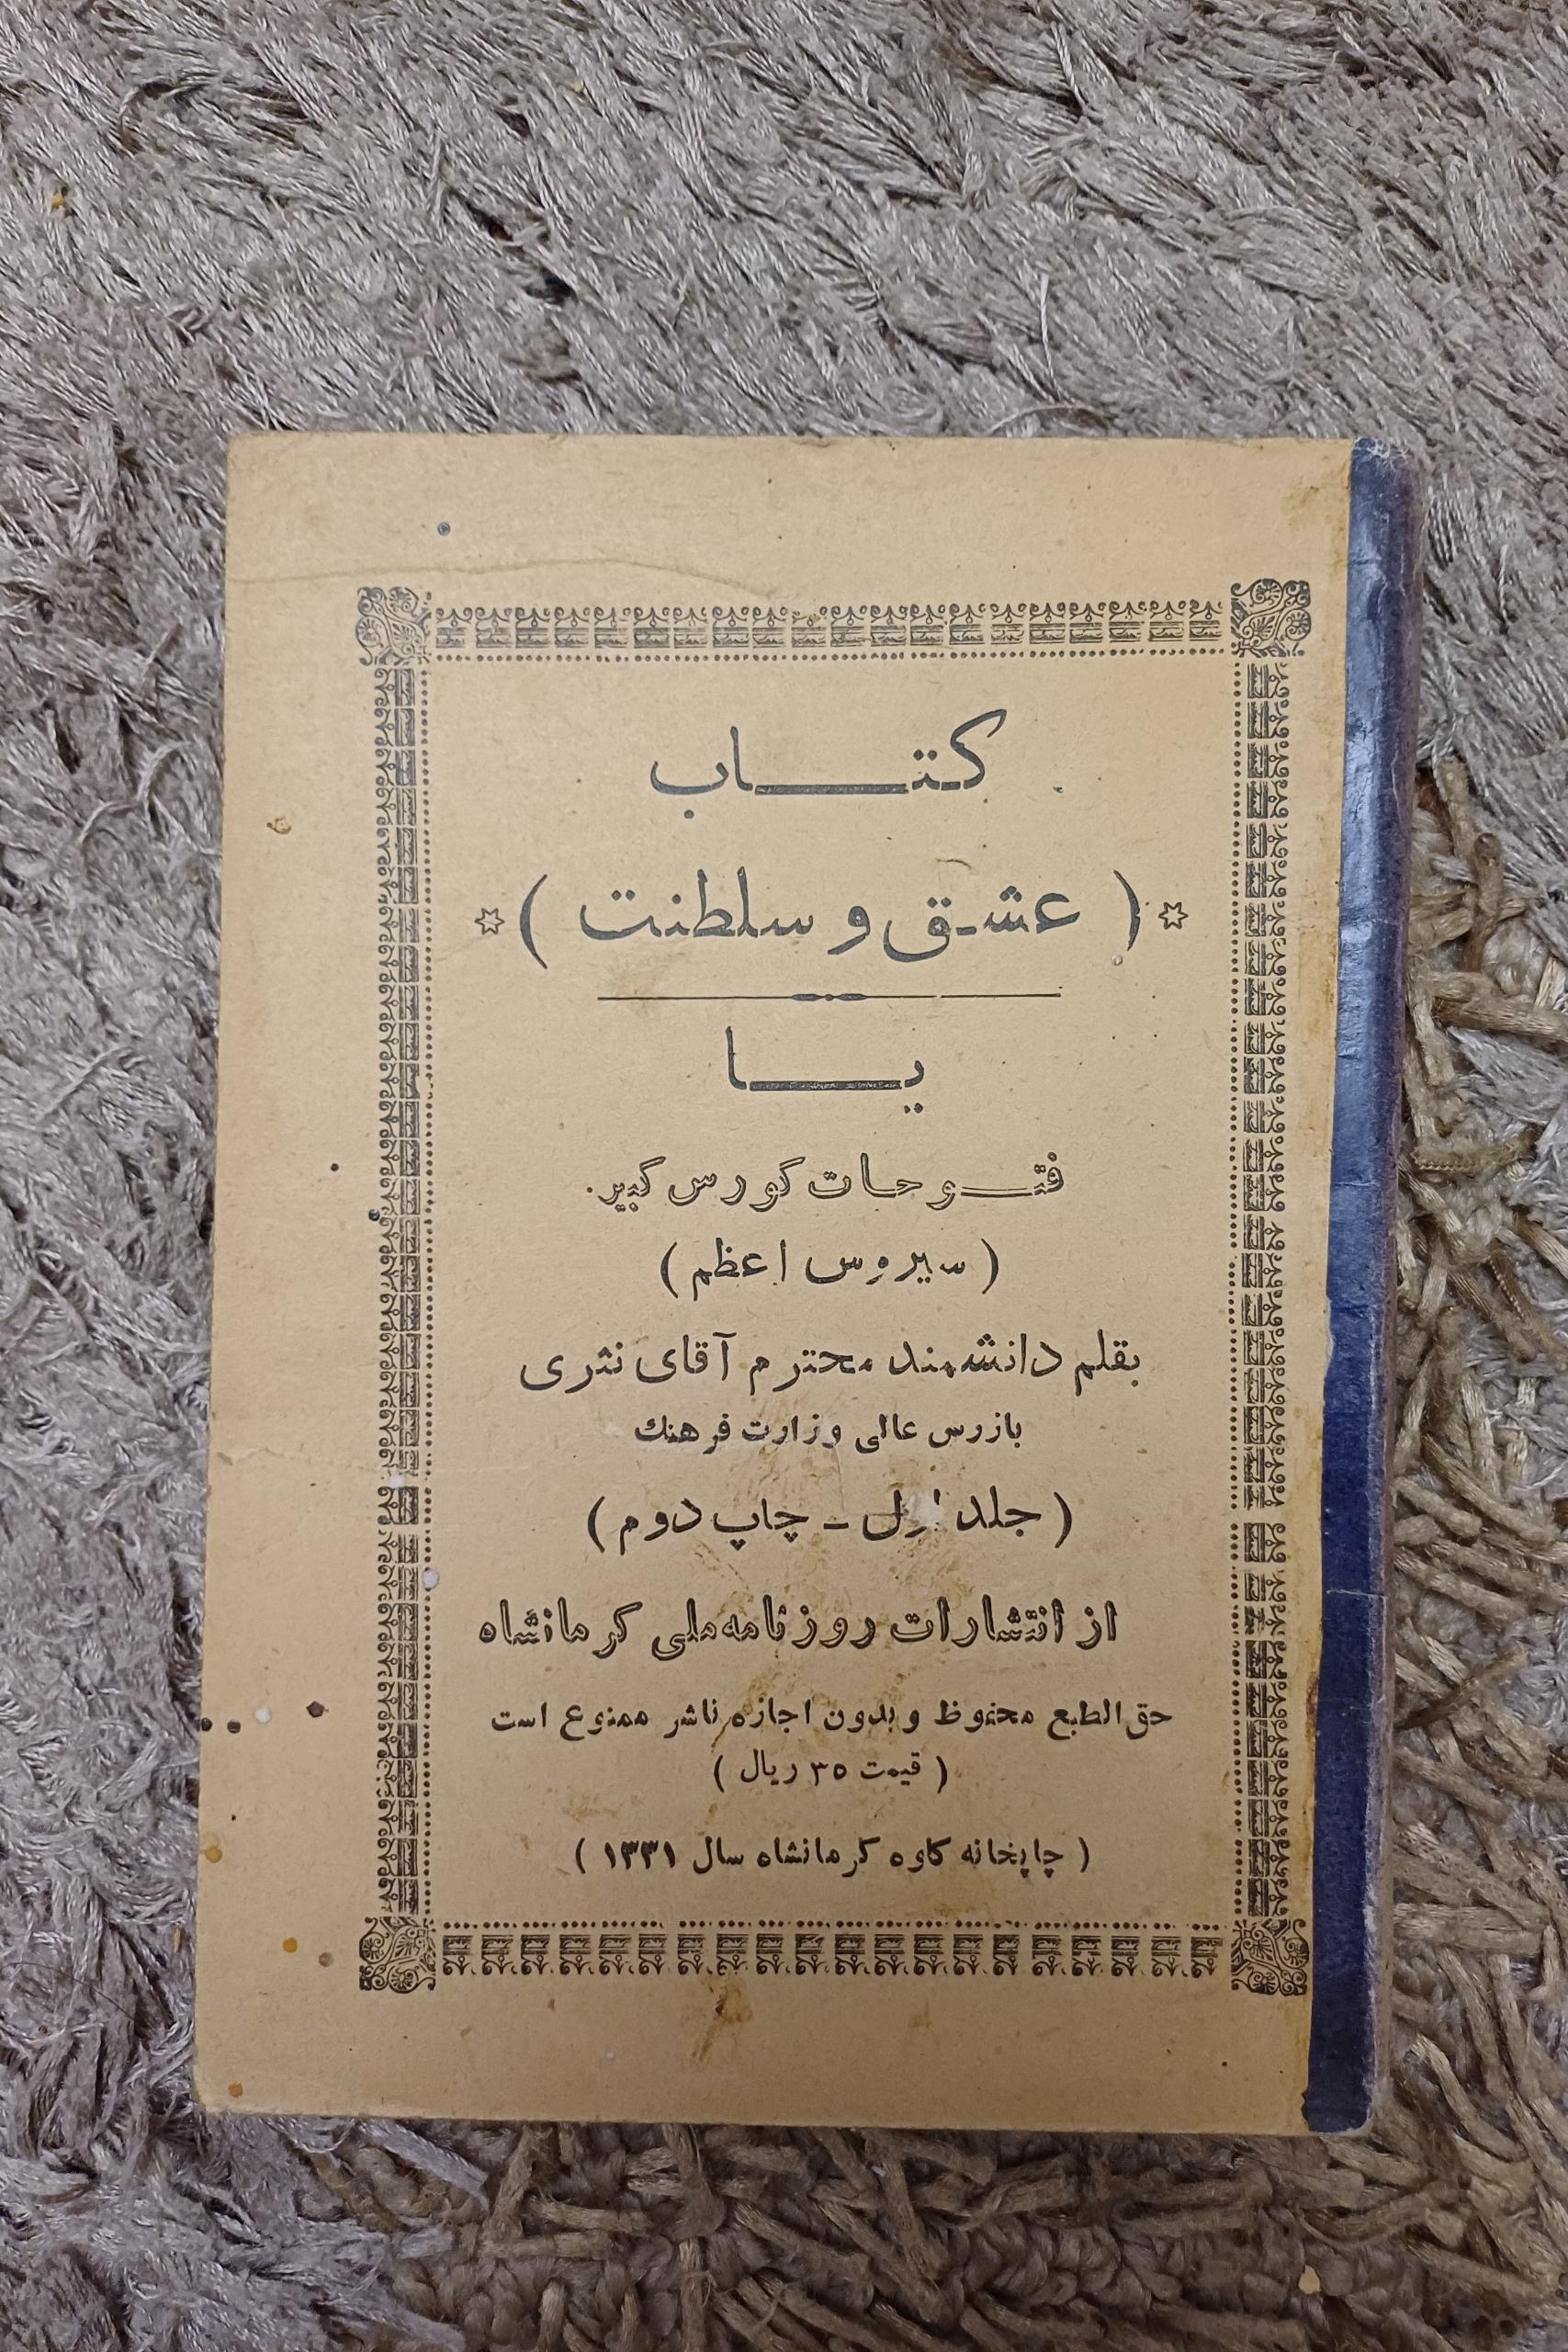 کتاب
( عشق و سلطنت )
یا
فتوحات کورس کبیر.
( سیروس اعظم )
بقلم دانشمند محترم آقای نثری
بازرس عالی وزارت فرهنك
( جلد اول - چاپ دوم )
از انتشارات روزنامه ملی کرمانشاه
حق الطبع محفوظ و بدون اجازه ناشر ممنوع است
( قیمت ۳۵ ریال )
( چاپخانه کاوه کرمانشاه سال ۱۳۳۱ )